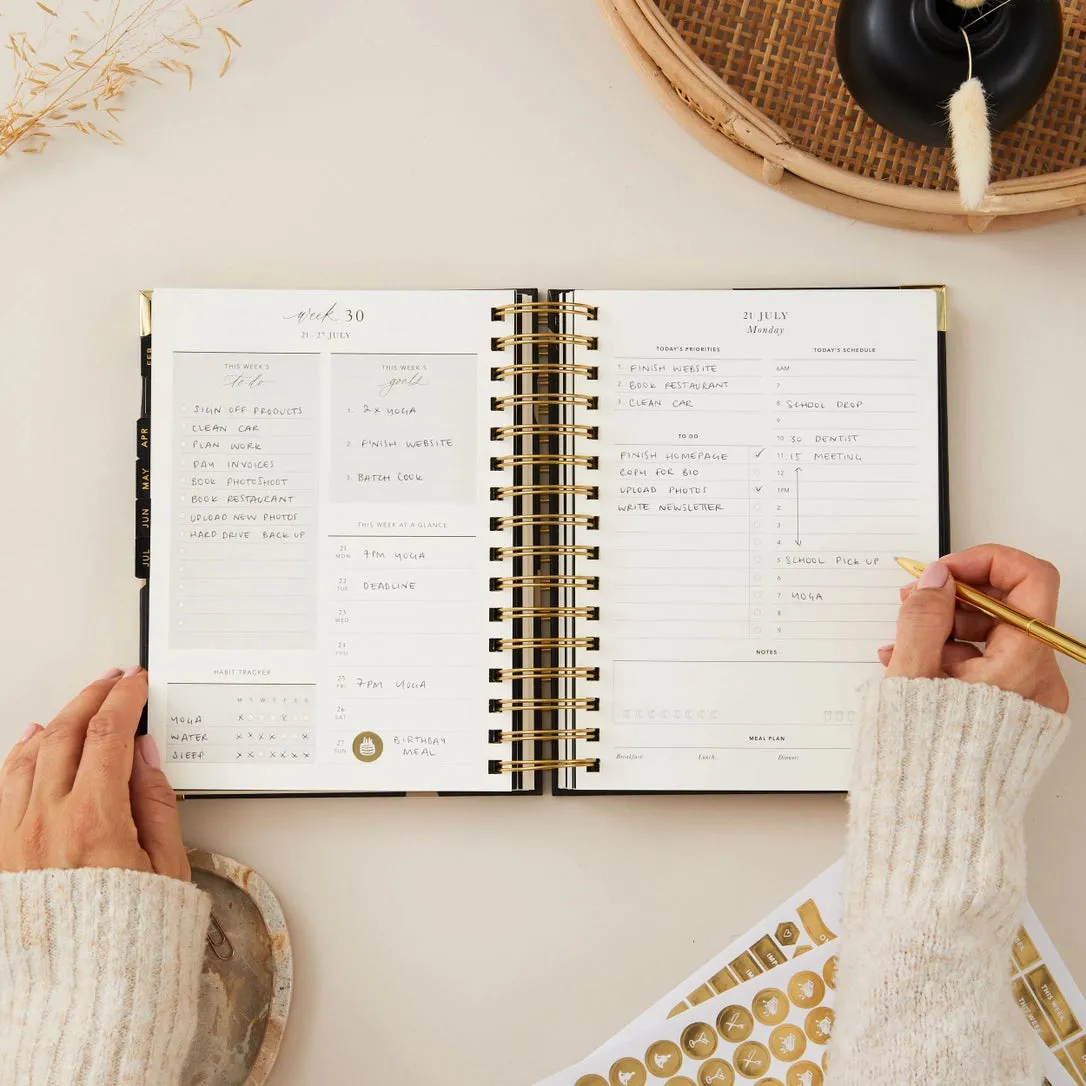 week 30
21 - 27 JULY
THIS WEEK'S
to-do
SIGN OFF PRODUCTS
CLEAN CAR
PLAN WORK
PAY INVOICES
BOOK PHOTOSHOOT
BOOK RESTAURANT
UPLOAD NEW PHOTOS
HARD DRIVE BACK UP
HABIT TRACKER
M T W T F S S
YOGA X X
WATER X X X X X
SLEEP X X X X X X
THIS WEEK'S
goals
1. 2 x YOGA
2. FINISH WEBSITE
3. BATCH COOK
THIS WEEK AT A GLANCE
21 MON 7PM YOGA
22 TUE DEADLINE
23 WED
24 THU
25 FRI 7PM YOGA
26 SAT
27 SUN BIRTHDAY
MEAL
FEB
APR
MAY
JUN
JUL
21 JULY
Monday
TODAY'S PRIORITIES
1. FINISH WEBSITE
2. BOOK RESTAURANT
3. CLEAN CAR
TO DO
FINISH HOMEPAGE ✓
COPY FOR BIO
UPLOAD PHOTOS ✓
WRITE NEWSLETTER
TODAY'S SCHEDULE
6AM
7
8 SCHOOL DROP
9
10 30 DENTIST
11 15 MEETING
12
1PM
2
3
4
5 SCHOOL PICK UP
6
7 YOGA
8
9
NOTES
MEAL PLAN
Breakfast: Lunch: Dinner:
THIS WEEK
THIS WEEK